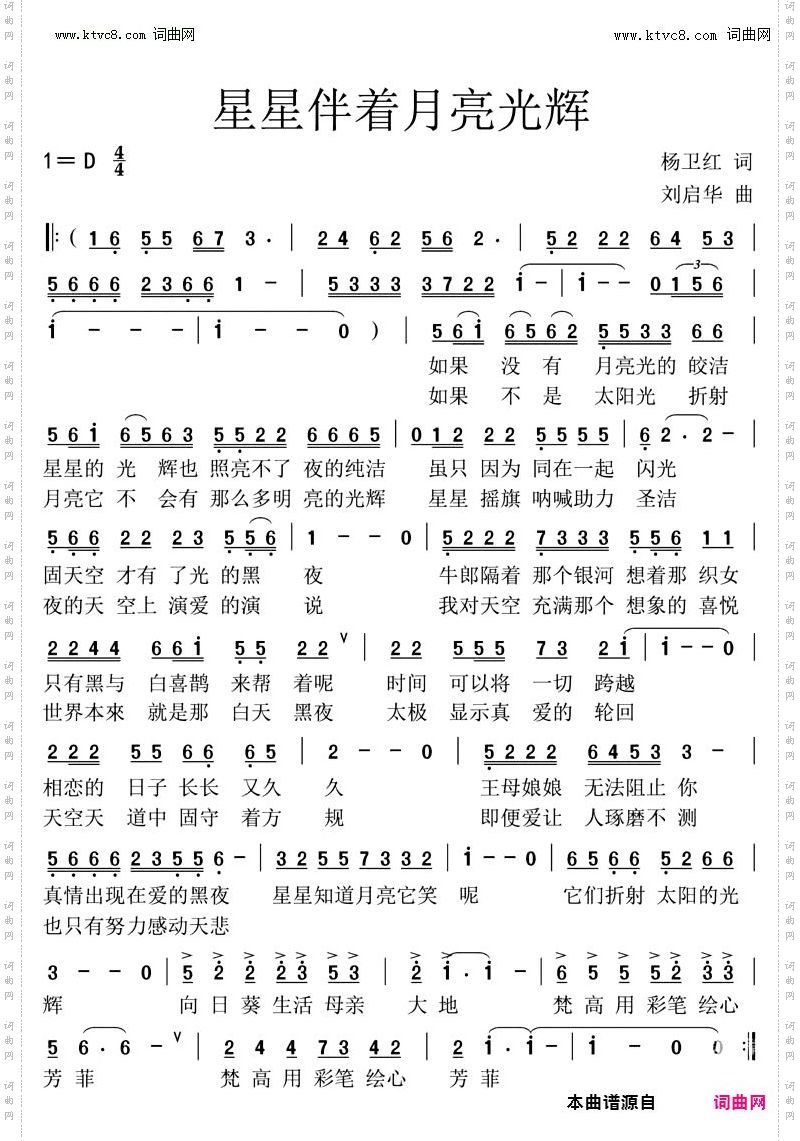 www.ktvc8.com 词曲网
www.ktvc8.com 词曲网
星星伴着月亮光辉
1=D 4/4
杨卫红 词
刘启华 曲
‖:( 16 55 67 3· | 24 62 56 2· | 52 22 64 53 |
5666 2366 1 - | 5333 3722 i - | i - 0156 |
i - - - | i - - 0 ) | 56i 6562 5533 66
如果 没有 月亮光的 皎洁
如果 不是 太阳光 折射
56i 6563 5522 6665 | 012 222 5555 | 6 2· 2 -
星星的 光 辉也 照亮不了 夜的纯洁 虽只 因为 同在一起 闪光
月亮它 不 会有 那么多明 亮的光辉 星星 摇旗 呐喊助力 圣洁
566 22 23 556 | 1 - - 0 | 5222 7333 556 11 |
固天空 才有 了光 的黑 夜 牛郎隔着 那个银河 想着那 织女
夜的天 空上 演爱 的演 说 我对天空 充满那个 想象的 喜悦
2244 66i 55 22 ∨ | 22 555 73 2i | i - - 0 |
只有黑与 白喜鹊 来帮 着呢 时间 可以将 一切 跨越
世界本來 就是那 白天 黑夜 太极 显示真 爱的 轮回
222 55 66 65 | 2 - - 0 | 5222 6453 3 - |
相恋的 日子 长长 又久 久 王母娘娘 无法阻止 你
天空天 道中 固守 着方 规 即便爱让 人琢磨不 测
5666 2355 6 - | 32 55 73 32 | i - - 0 | 65 65 52 66 |
真情出现在爱的黑夜 星星知道月亮它笑 呢 它们折射 太阳的光
也只有努力感动天悲
3 - - 0 | 5 2 2 5 5 3 5 | 2 i· i - | 6 5 5 5 2 3 3 |
辉 向日葵生活 母亲 大地 梵高用彩笔绘心
5 6· 6 - ∨ | 2 4 4 73 42 | 2 i· i - | i - 0 0 :‖
芳菲 梵高用彩笔绘心 芳菲
本曲谱源自 词曲网